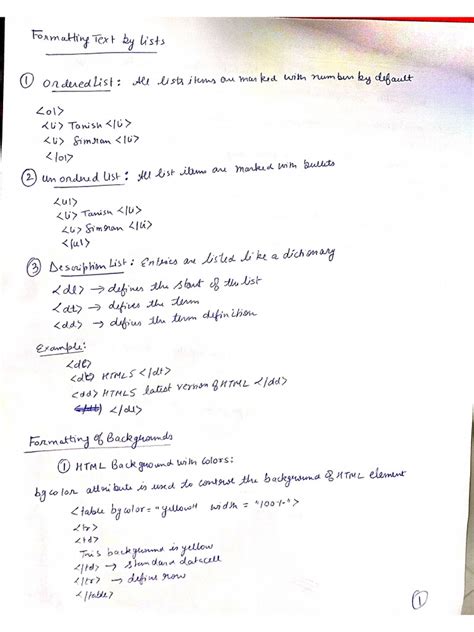 Formatting Text by Lists
① Ordered List: All lists items are marked with numbers by default
<ol>
<li> Tanish </li>
<li> Simran </li>
</ol>
② Unordered List: All list items are marked with bullets
<ul>
<li> Tanish </li>
<li> Simran </li>
</ul>
③ Description List: Entries are listed like a dictionary
<dl> → defines the start of the list
<dt> → defines the term
<dd> → defines the term definition
Example:
<dl>
<dt> HTML5 </dt>
<dd> HTML5 latest version of HTML </dd>
</dl>
Formatting of Backgrounds
① HTML Background with Colors:
bgcolor attribute is used to control the background of HTML element
<table bgcolor="yellow" width="100%">
<tr>
<td>
This background is yellow
</td> → standard datacell
</tr> → define row
</table>
①